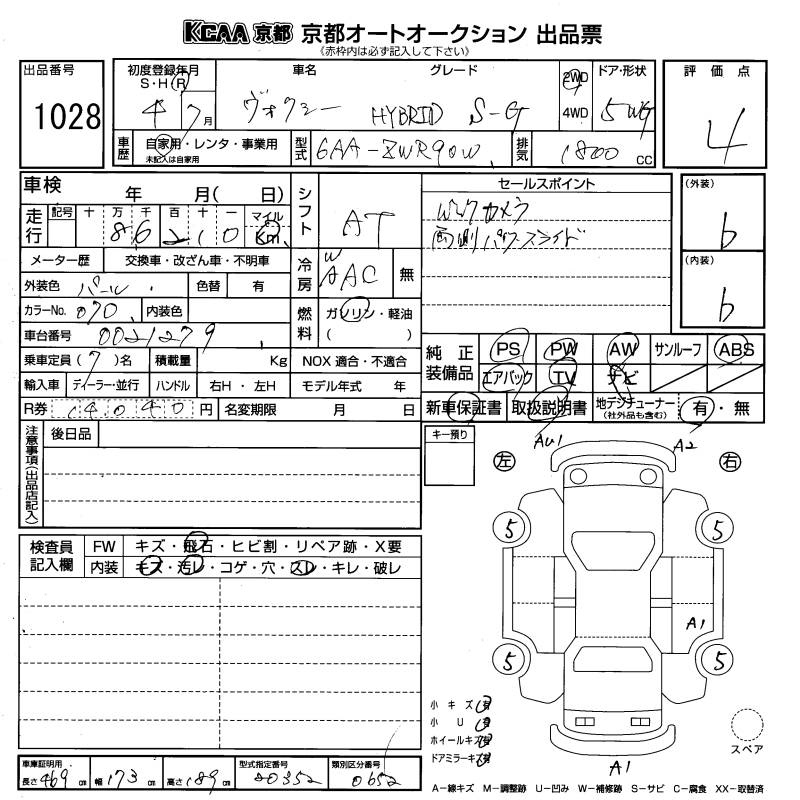 KCAA 京都 京都オートオークション 出品票
《赤枠内は必ず記入して下さい》
出品番号 1028
初度登録年月 S・H・R 4 7月
車名 ヴォクシー
グレード HYBRID S-G
2WD 4WD
ドア・形状 5WG
評価点 4
車歴 自家用・レンタ・事業用
未記入は自家用
型式 6AA-ZWR90W
排気 1800 cc
車検 年 月( 日)
シフト AT
セールスポイント
Wマクカメラ
両側パワースライド
(外装) b
(内装) b
走行 記号 十 万 千 百 十 一 マイル Km
86210
メーター歴 交換車・改ざん車・不明車
冷房 WAAC 無
外装色 パール 色替 有
カラーNo. 070 内装色
燃料 ガソリン・軽油
( )
車台番号 0021279
乗車定員(7)名 積載量 Kg NOX 適合・不適合
輸入車 ディーラー・並行 ハンドル 右H・左H モデル年式 年
R券 14040円 名変期限 月 日
純正装備品 PS PW AW サンルーフ ABS
エアバック TV ナビ
新車保証書 取扱説明書 地デジチューナー(社外品も含む) 有・無
注意事項(出品店記入)
後日品
キー預り
左 右
AU1 A2
5 5
A1
5 5
A1
検査員記入欄
FW キズ・飛石・ヒビ割・リペア跡・X要
内装 キズ・汚レ・コゲ・穴・スレ・キレ・破レ
小キズ 有
小U 有
ホイールキズ 有
ドアミラーキズ 有
スペア
車庫証明用 長さ469cm 幅173cm 高さ189cm
型式指定番号 20352
類別区分番号 0652
A−線キズ M−調整跡 U−凹み W−補修跡 S−サビ C−腐食 XX−取替済